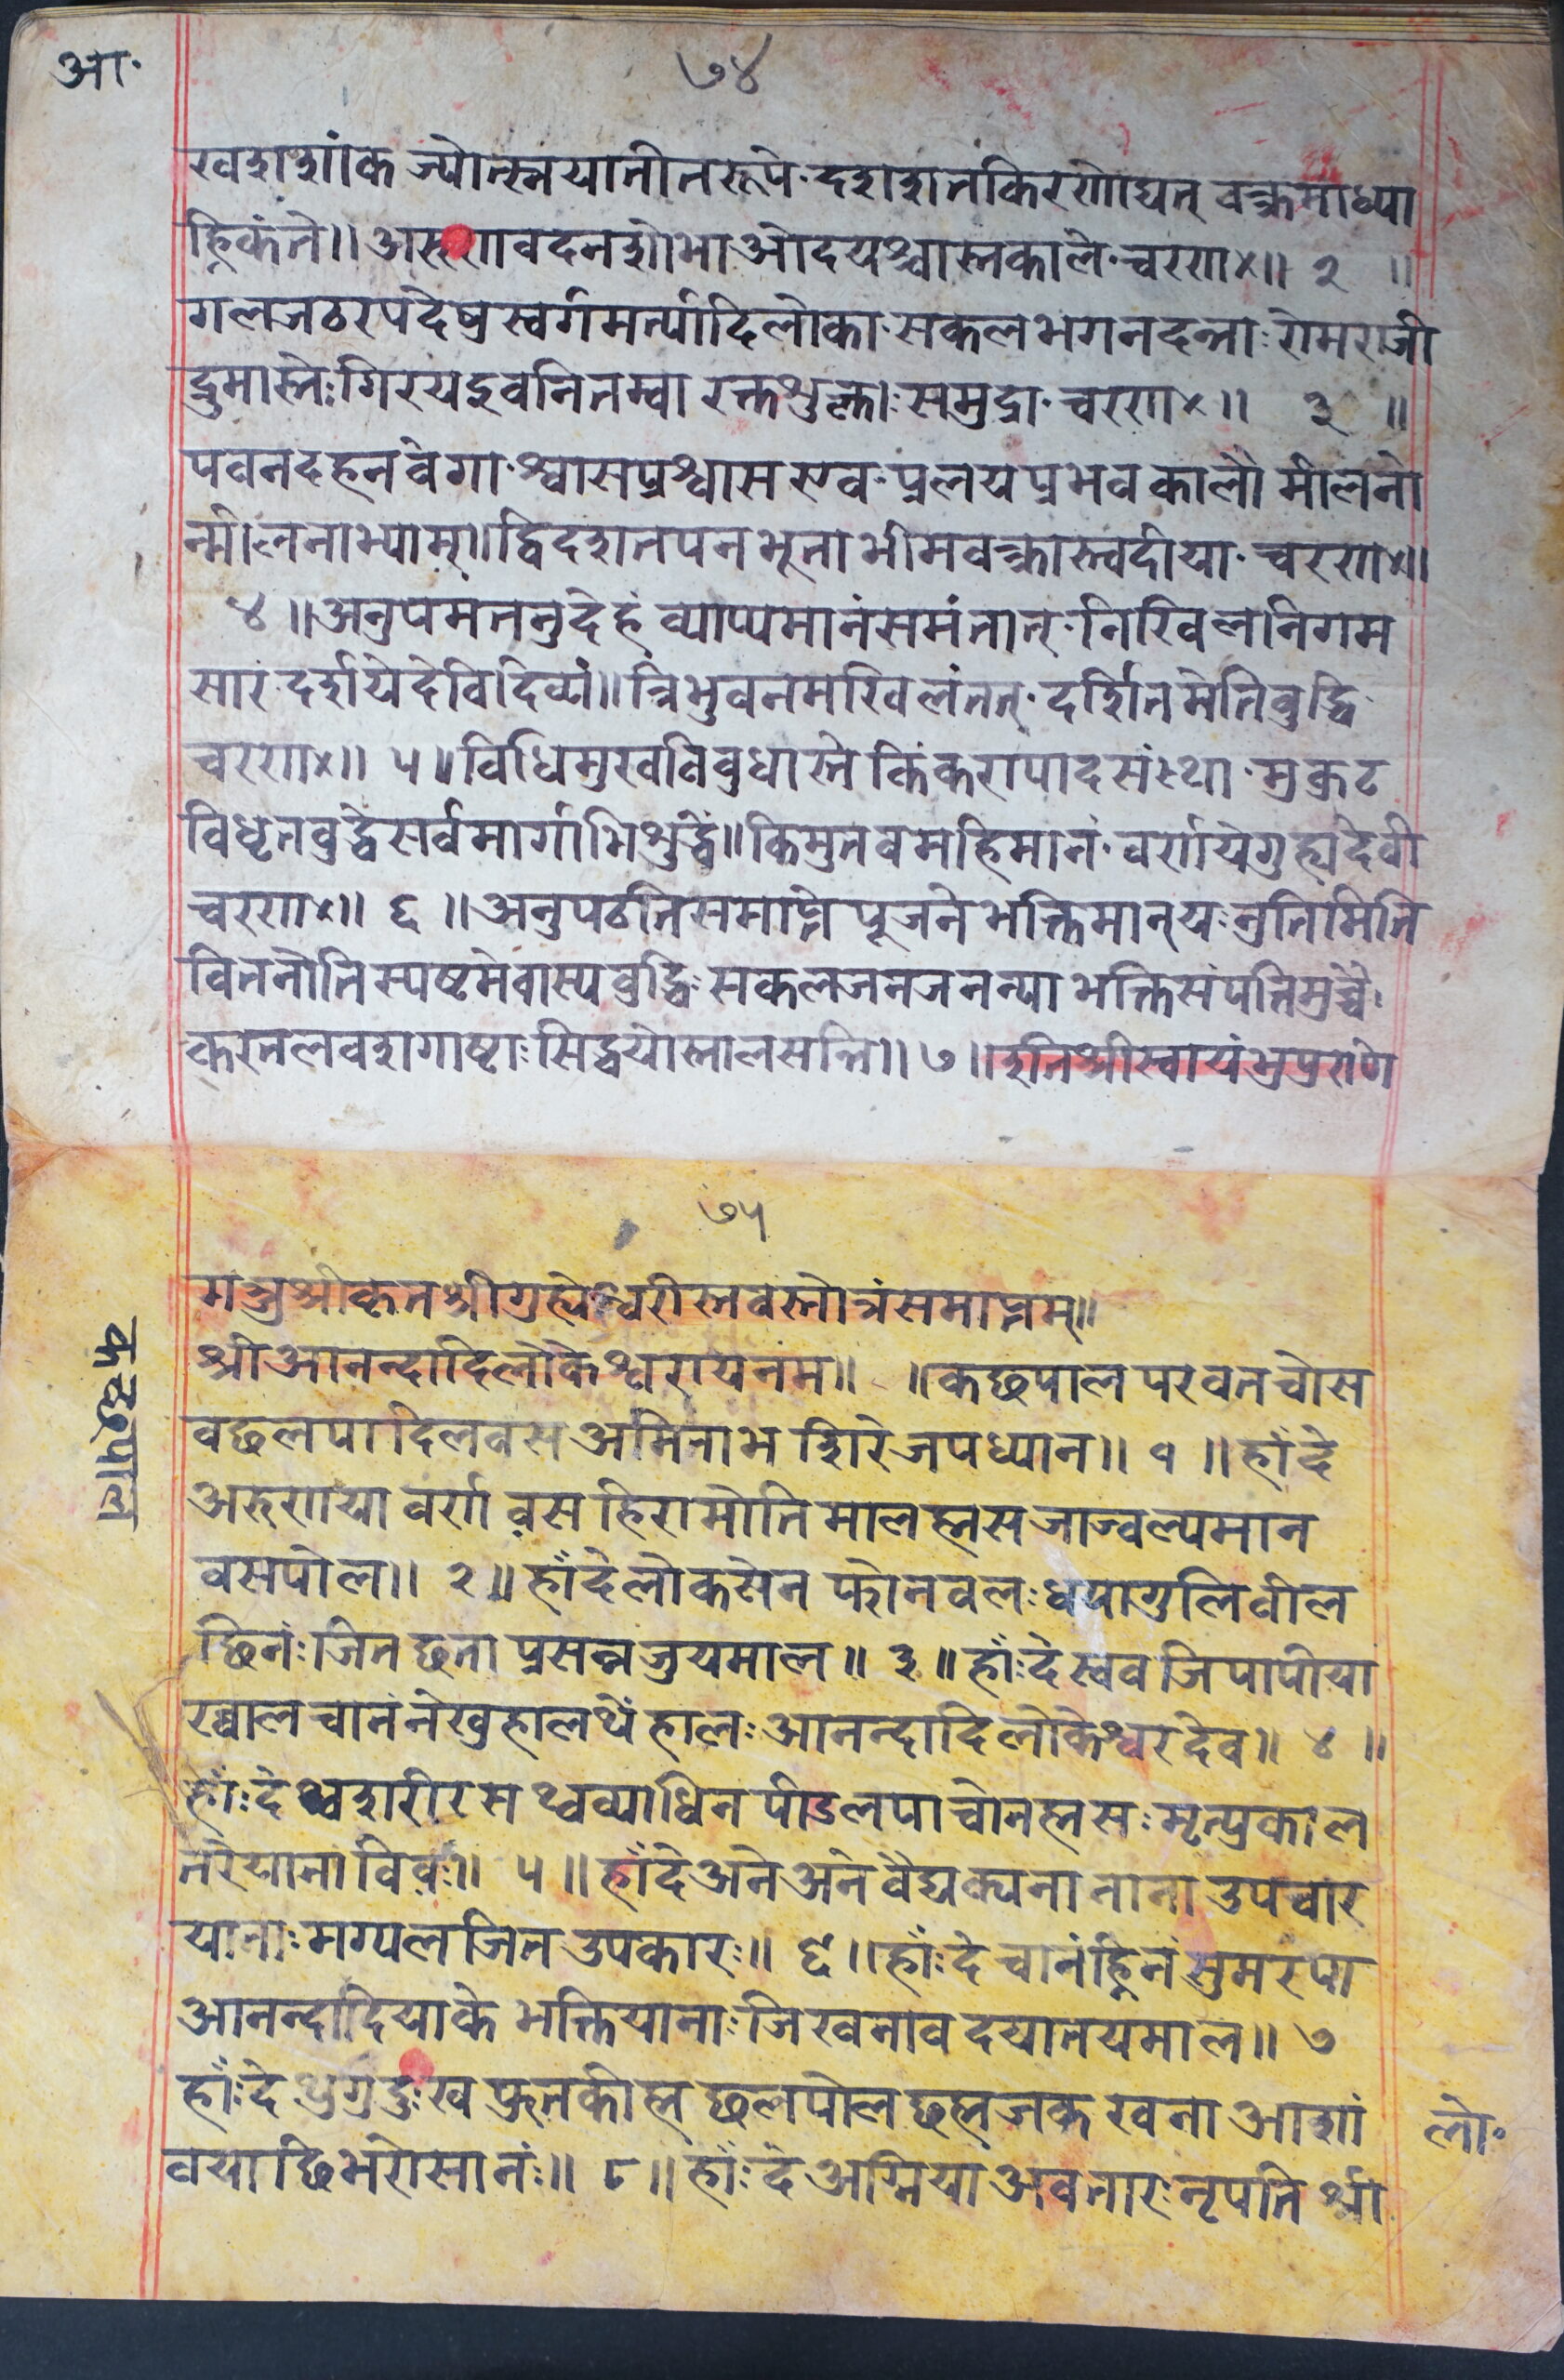 आ॰
७४
खदशशांक ज्योत्स्नयातीतरूपे॰दशशतकिरणोद्यत् वक्त्रमाध्या
ह्निकंते॥अरुणवदनशोभाओदयश्चास्तकाले॰चरण४॥ २ ॥
गलजठरपदेषुस्वर्गमर्त्यादिलोका॰सकलभगनदन्ताःरोमराजी
द्रुमास्तेःगिरयइवनितम्बा रक्तशुक्लाःसमुद्रा॰चरण४॥ ३ ॥
पवनदहनवेगा॰श्वासप्रश्वास एव॰प्रलयप्रभवकालौ मीलनो
न्मीलनाभ्याम्॥द्विदशतपनभूताभीमवक्त्रास्त्वदीया॰चरण४॥
४ ॥अनुपमतनुदेहं व्याप्यमानंसमंतात्॰निखिलनिगम
सारं दर्शयेदेविदिव्यं॥त्रिभुवनमखिलंतत्॰दर्शितमेतिबुद्धि॰
चरण४॥ ५॥विधिमुखविबुधास्ते किंकरापादसंस्था॰मुकुट
विधृतबुद्धेसर्वमार्गाभिशुद्धे॥किमुतवमहिमानं॰वर्णयेगुह्यदेवी
चरण४॥ ६ ॥अनुपठतिसमाप्ते पूजने भक्तिमान्यःनुतिमिति
वितनोतिस्पष्टमेवास्यबुद्धिः॰सकलजनजनन्या भक्तिसंपत्तिमुच्चैः
करतलवशगाष्टाःसिद्धयोस्तालसन्ति॥७॥इतिश्रीस्वायंभुपुराणे
७५
मञ्जुश्रीकृतश्रीगुह्येश्वरीस्तवस्तोत्रंसमाप्तम्॥
श्रीआनन्दादिलोकेश्वरायनम॥ ॥कछपाल परवतचोस
कछपाल
वछलपादिलवस अमिताभ शिरे जपध्यान॥ १ ॥हाँदे
अरुणया वर्ण वस हिरामोति मालह्नस जाज्वल्यमान
वसपोल॥ २॥हाँदेलोकसेन फोनवलःधपागुलिवील
छिनंःजित छता प्रसन्न जुयमाल॥ ३॥हाँःदे स्ववजिपापीया
ख्वालचानंनेखुहालथें हालःआनन्दादिलोकेश्वरदेव॥ ४ ॥
हाँःदे थ्वशरीरस थ्वव्याधिन पीडलपाचोनह्नसःमृत्युकाल
नरेयाना विव॥ ५॥हाँदेअनेअने वैद्यक्यना नाना उपचार
यानाःमग्यल जित उपकारः॥ ६॥हाँःदे चानंह्निनं सुमरपा
आनन्दादियाके भक्तियानाःजिखनाव दयातयमाल॥ ७
हाँःदे थुगुदुःख फुतकीह्न छलपोल छह्नजक खना आशां
लो॰
वया छिभरोसानंः॥ ८॥हाँःदे अग्निया अवतारःनृपति श्री